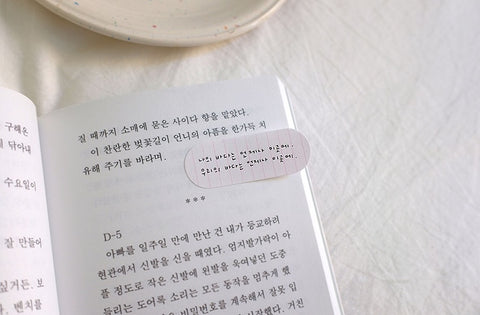 구해온
뒤 닦아내
수요일이
잘 만들어
싶거든. 보
벤치를
질 때까지 소매에 묻은 사이다 향을 맡았다.
이 찬란한 벚꽃길이 언니의 아픔을 한가득 치
유해 주기를 바라며.
나의 바다는 언제나 이곳에.
우리의 바다는 언제나 이곳에.
***
D-5
아빠를 일주일 만에 만난 건 내가 등교하려
현관에서 신발을 신을 때였다. 엄지발가락이 아
플 정도로 작은 신발에 왼발을 욱여넣던 도중
들리는 도어록 소리는 모든 동작을 멈추게 했
비밀번호를 계속해서 잘못 입
거친